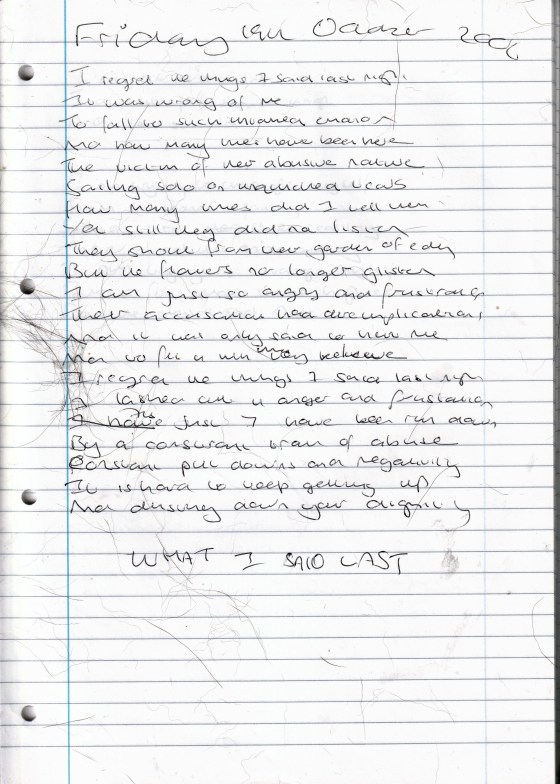 Friday October
I regret the things I said last night
It was wrong of me
To fall to such emotion
And how many times have been here
The victim of her abusive nature
Sailing solo on
How many times did I tell them
Yet still they did not listen
They shout from their garden of eden
But the flowers no longer glisten
I am just so angry and frustrated
Their accusation had
And it was only said to hurt me
And to fit in with they believe
I regret the things I said last night
I lashed out in anger and frustration
Its just I have been run down
By a constant stream of abuse
Constant put downs and negativity
It is hard to keep getting up
And dusting down your dignity
WHAT I SAID LAST